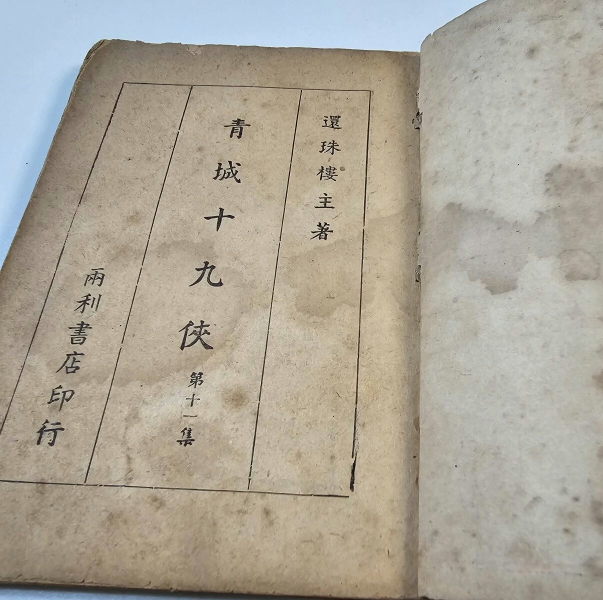 還珠樓主著
青城十九俠 第十一集
兩利書店印行